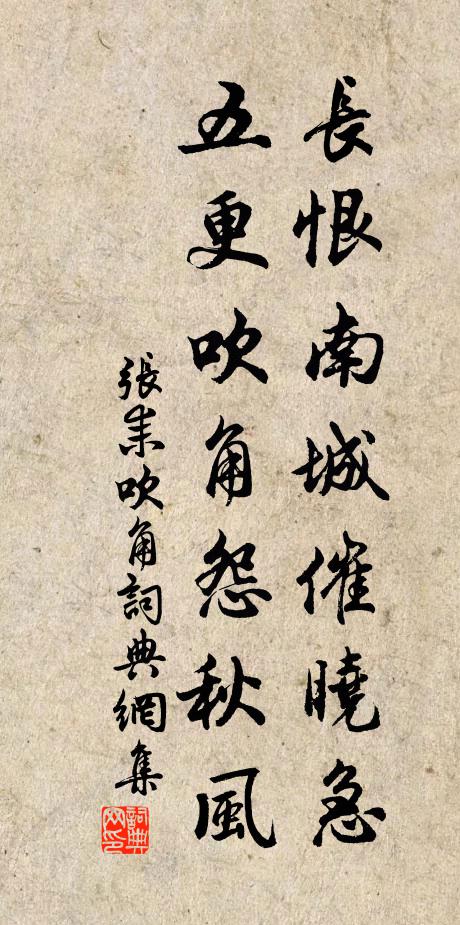 長恨南城催曉急
五更吹角怨秋風
張耒吹角詞典網集
詞典网印